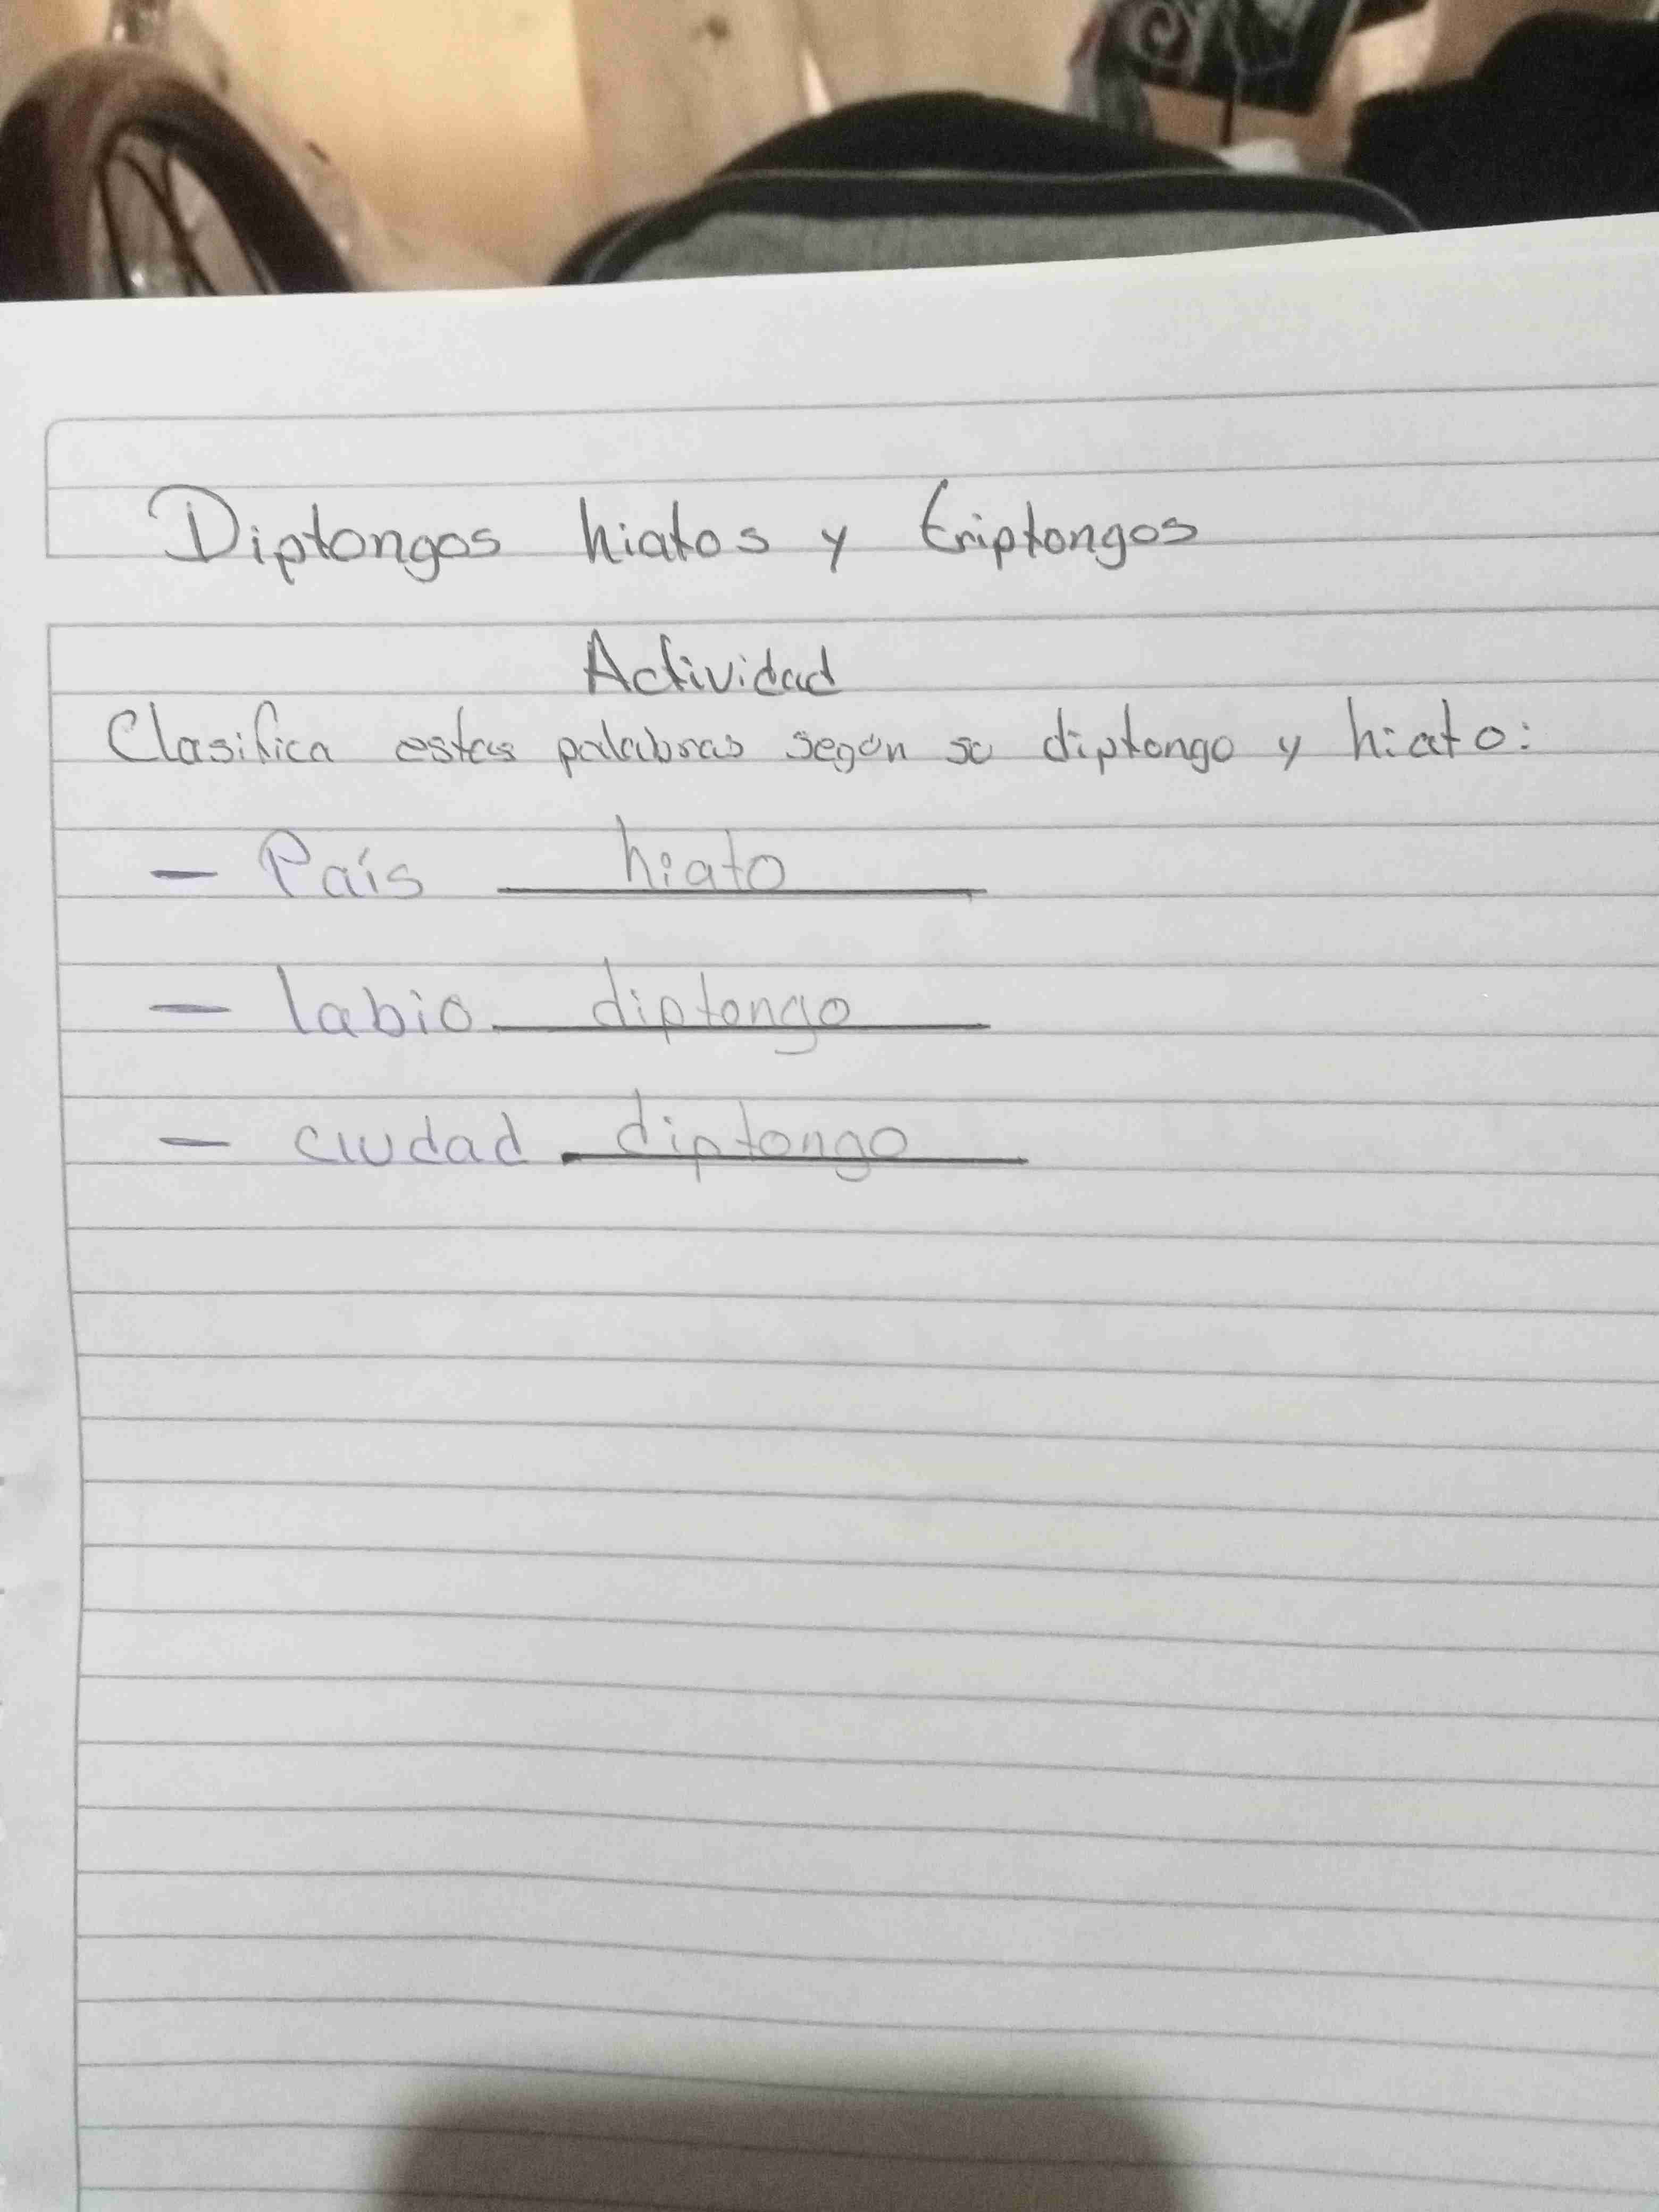 Diptongos hiatos y triptongos
Actividad
Clasifica estas palabras según su diptongo y hiato:
- País hiato
- labio diptongo
- ciudad diptongo